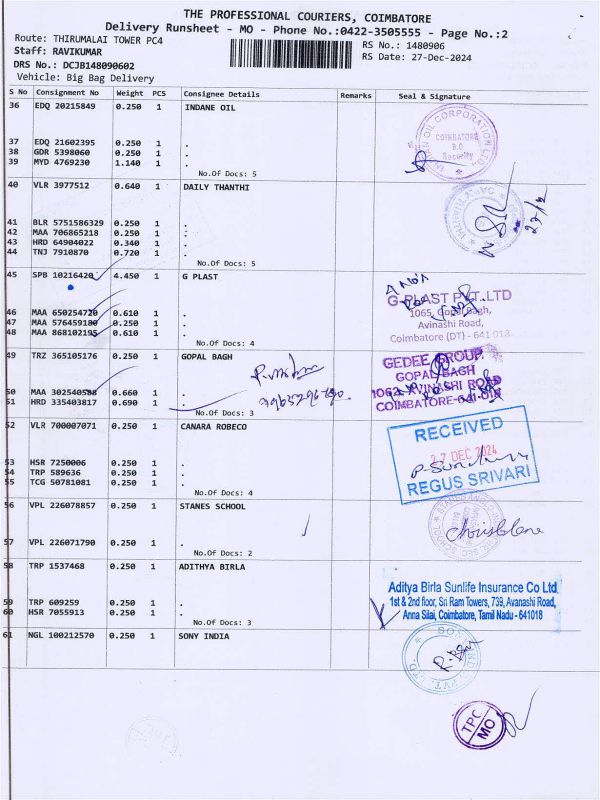 THE PROFESSIONAL COURIERS, COIMBATORE
Delivery Runsheet - MO - Phone No.:0422-3505555 - Page No.:2
Route: THIRUMALAI TOWER PC4
RS No.: 1480906
Staff: RAVIKUMAR
RS Date: 27-Dec-2024
DRS No.: DCJB148090602
Vehicle: Big Bag Delivery
S No Consignment No Weight PCS Consignee Details Remarks Seal & Signature
36 EDQ 20215849 0.250 1 INDANE OIL
37 EDQ 21602395 0.250 1 .
38 GDR 5398060 0.250 1 .
39 MYD 4769230 1.140 1 .
No.Of Docs: 5
COIMBATORE
Security
40 VLR 3977512 0.640 1 DAILY THANTHI
41 BLR 5751586329 0.250 1 .
42 MAA 706865218 0.250 1 .
43 HRD 64904022 0.340 1 .
44 TNJ 7910870 0.720 1 .
No.Of Docs: 5
45 SPB 10216420 4.450 1 G PLAST
46 MAA 650254720 0.610 1 .
47 MAA 576459180 0.250 1 .
48 MAA 868102195 0.610 1 .
No.Of Docs: 4
G-PLAST PVT. LTD
1065, Gopal Bagh,
Avinashi Road,
Coimbatore (DT) - 641 018
49 TRZ 365105176 0.250 1 GOPAL BAGH
50 MAA 302540588 0.660 1 .
51 HRD 335403817 0.690 1 .
No.Of Docs: 3
GEDEE GROUP
GOPAL BAGH
1062 AVINASHI ROAD
COIMBATORE-641 018
52 VLR 700007071 0.250 1 CANARA ROBECO
53 HSR 7250006 0.250 1 .
54 TRP 589636 0.250 1 .
55 TCG 50781081 0.250 1 .
No.Of Docs: 4
RECEIVED
27 DEC 2024
REGUS SRIVARI
56 VPL 226078857 0.250 1 STANES SCHOOL
57 VPL 226071790 0.250 1 .
No.Of Docs: 2
58 TRP 1537468 0.250 1 ADITHYA BIRLA
59 TRP 609259 0.250 1 .
60 HSR 7055913 0.250 1 .
No.Of Docs: 3
Aditya Birla Sunlife Insurance Co Ltd.
1st & 2nd floor, Sri Ram Towers, 739, Avanashi Road,
Anna Silai, Coimbatore, Tamil Nadu - 641018
61 NGL 100212570 0.250 1 SONY INDIA
TPC
MO